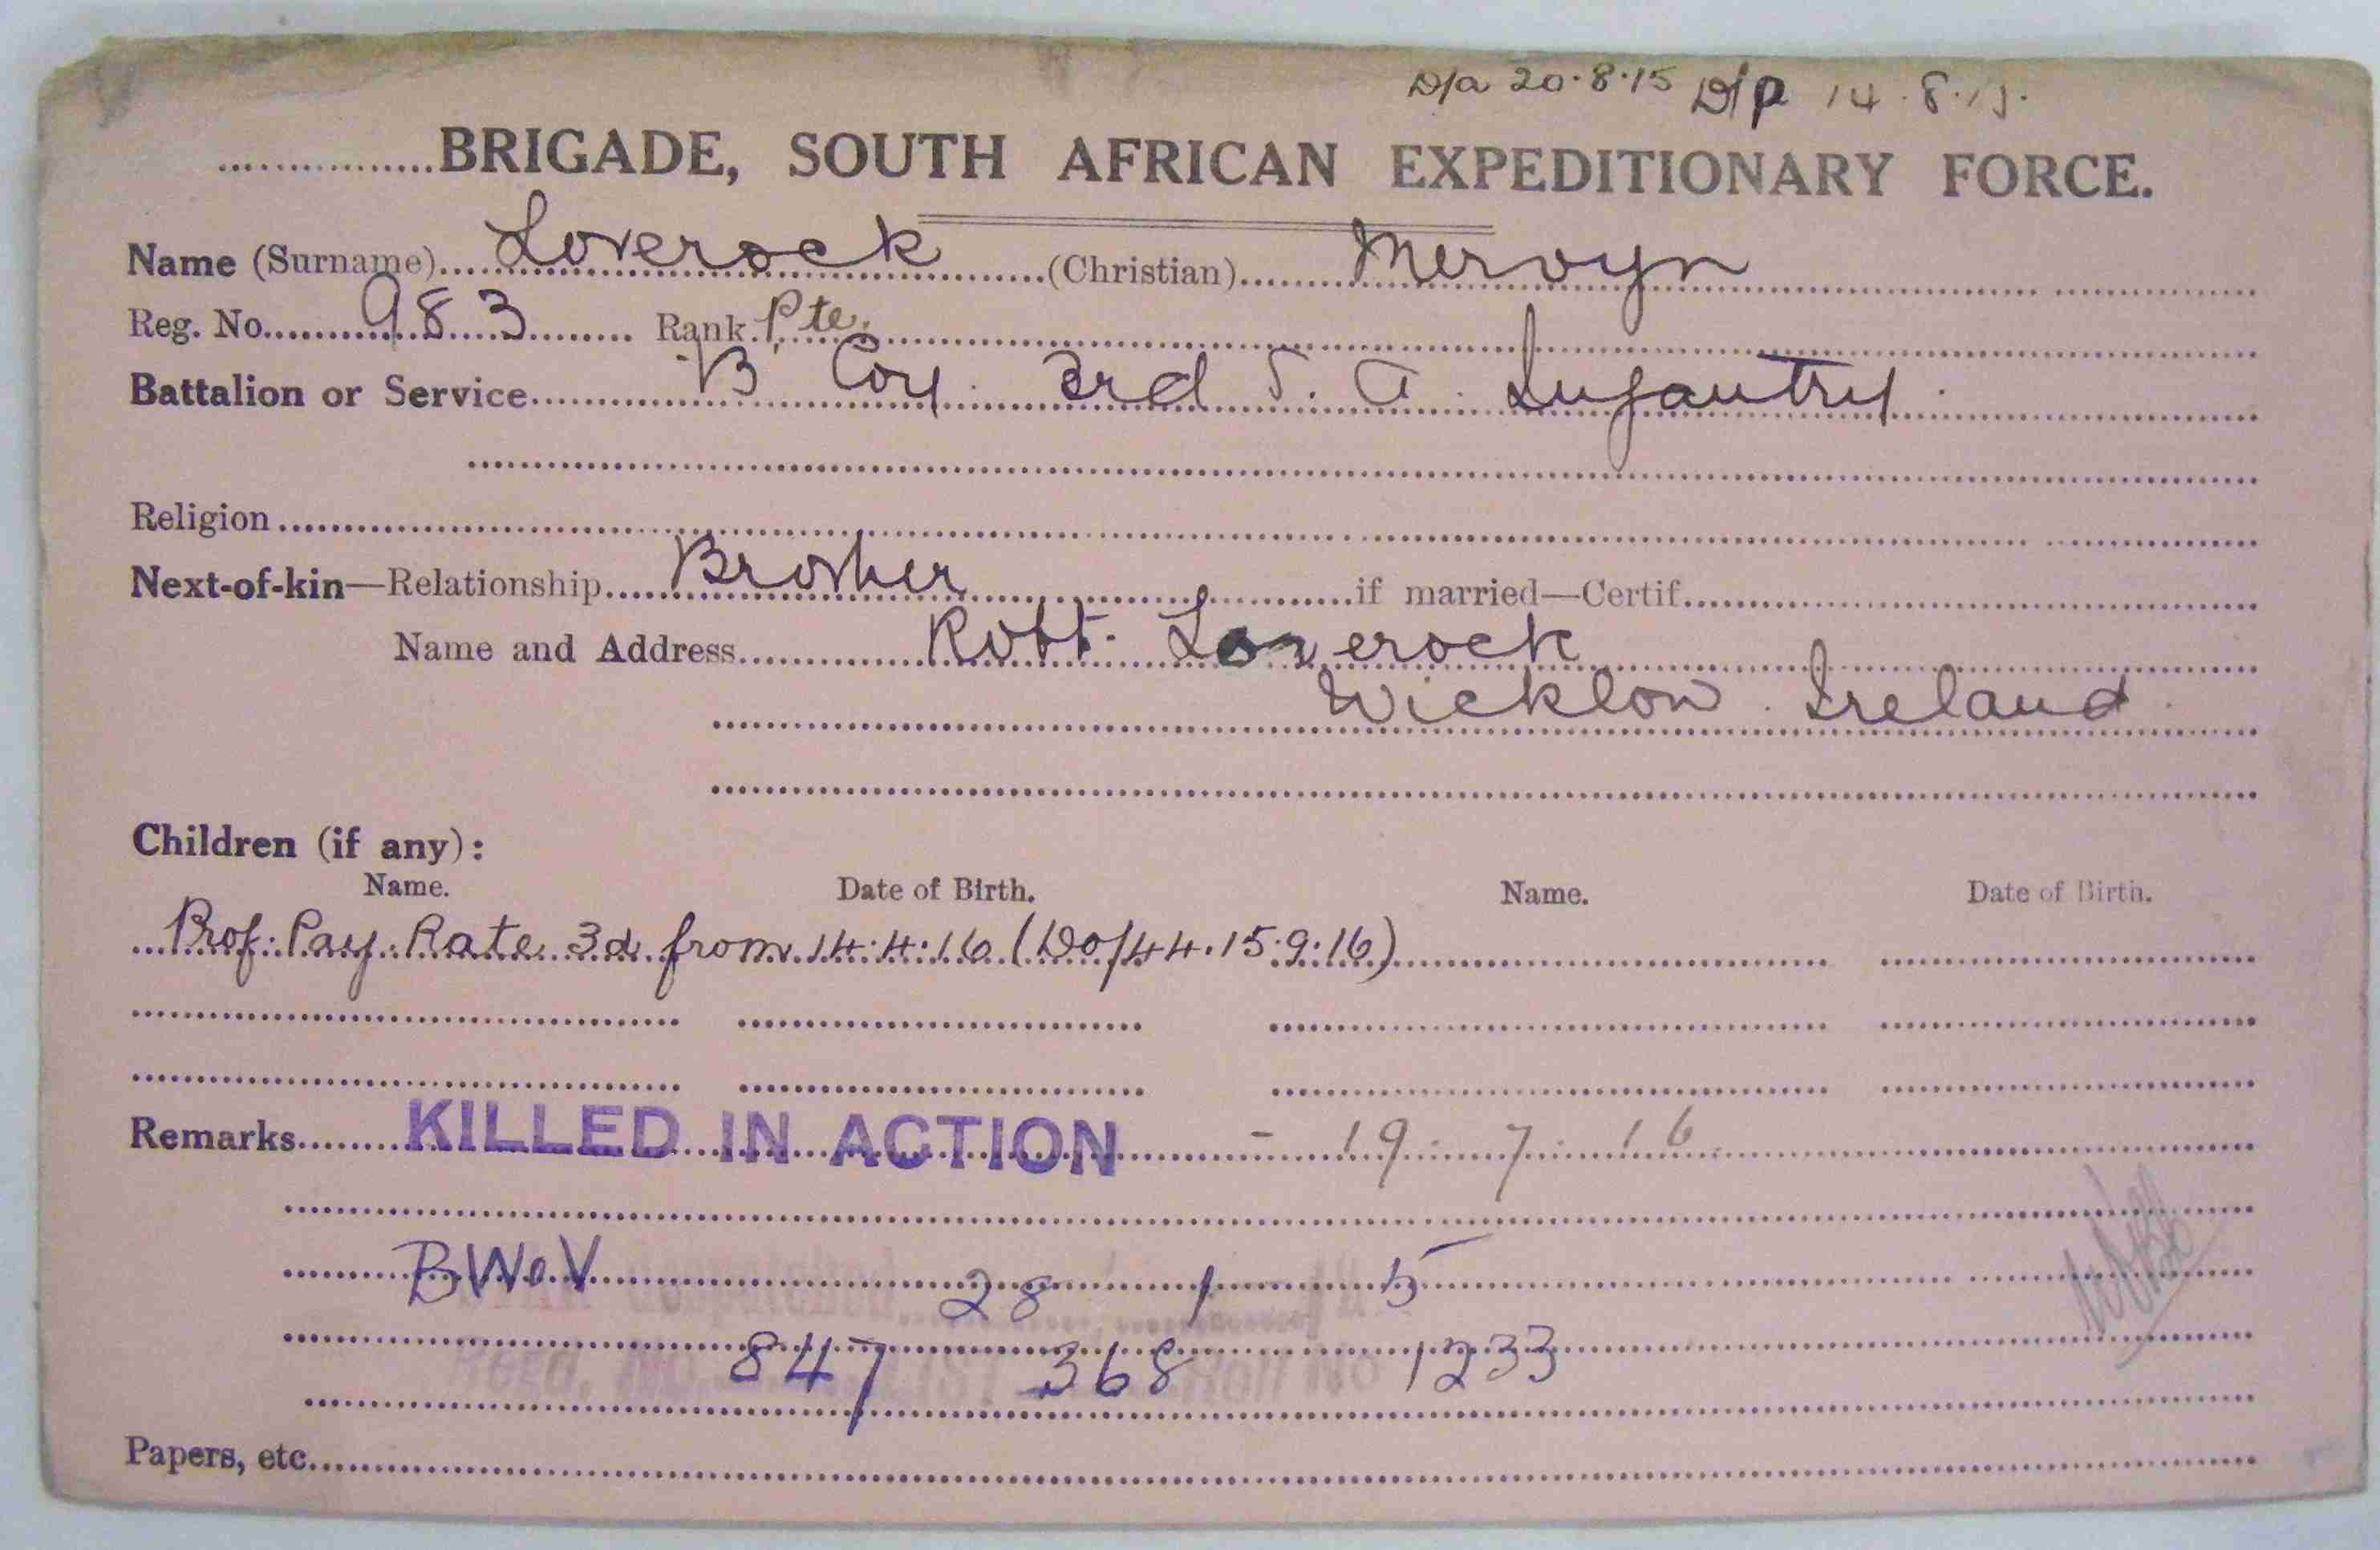 D/a 20.8.15 D/p 14.8.15.
BRIGADE, SOUTH AFRICAN EXPEDITIONARY FORCE.
Name (Surname) Loverock (Christian) Mervyn
Reg. No. 983 Rank Pte.
Battalion or Service B Coy. 3rd S. A. Infantry.
Religion
Next-of-kin—Relationship Brother if married—Certif.
Name and Address Robt. Loverock
Wicklow. Ireland.
Children (if any):
Name. Date of Birth. Name. Date of Birth.
Prof: Pay: Rate 3d from 14:4:16 (Do/44.15.9.16)
Remarks KILLED IN ACTION - 19. 7. 16
BW&V 28 1 5
847 368 Roll No 1233
Papers, etc.